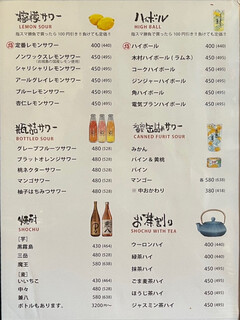 檸檬サワー
LEMON SOUR
ハイボール
HIGH BALL
定番レモンサワー 400 (440)
ノンワックスレモンサワー 450 (495)
シャリシャリレモンサワー 450 (495)
アールグレイレモンサワー 450 (495)
ブルーレモンサワー 450 (495)
杏仁レモンサワー 450 (495)
ハイボール 400 (440)
木村ハイボール（ラムネ） 450 (495)
コークハイボール 450 (495)
ジンジャーハイボール 450 (495)
角ハイボール 450 (495)
電気ブランハイボール 450 (495)
瓶詰サワー
BOTTLED SOUR
缶詰めサワー
CANNED FURIT SOUR
グレープフルーツサワー 480 (528)
ブラットオレンジサワー 480 (528)
桃ネクターサワー 480 (528)
マンゴサワー 480 (528)
柚子はちみつサワー 480 (528)
みかん
パイン & 黄桃
パイン
マンゴー 各580 (638)
※ 中おかわり 380
焼酎
SHOCHU
お茶割り
SHOCHU WITH TEA
[芋]
黒霧島 430 (464)
三岳 480 (528)
魔王 580 (638)
[麦]
いいちこ 430 (464)
中々 480 (528)
兼八 580 (638)
ボトルもあります。 3200〜
ウーロンハイ 400 (440)
緑茶ハイ 400 (440)
抹茶ハイ 450 (495)
ごま麦茶ハイ 450 (495)
ほうじ茶ハイ 450 (495)
ジャスミン茶ハイ 450 (495)